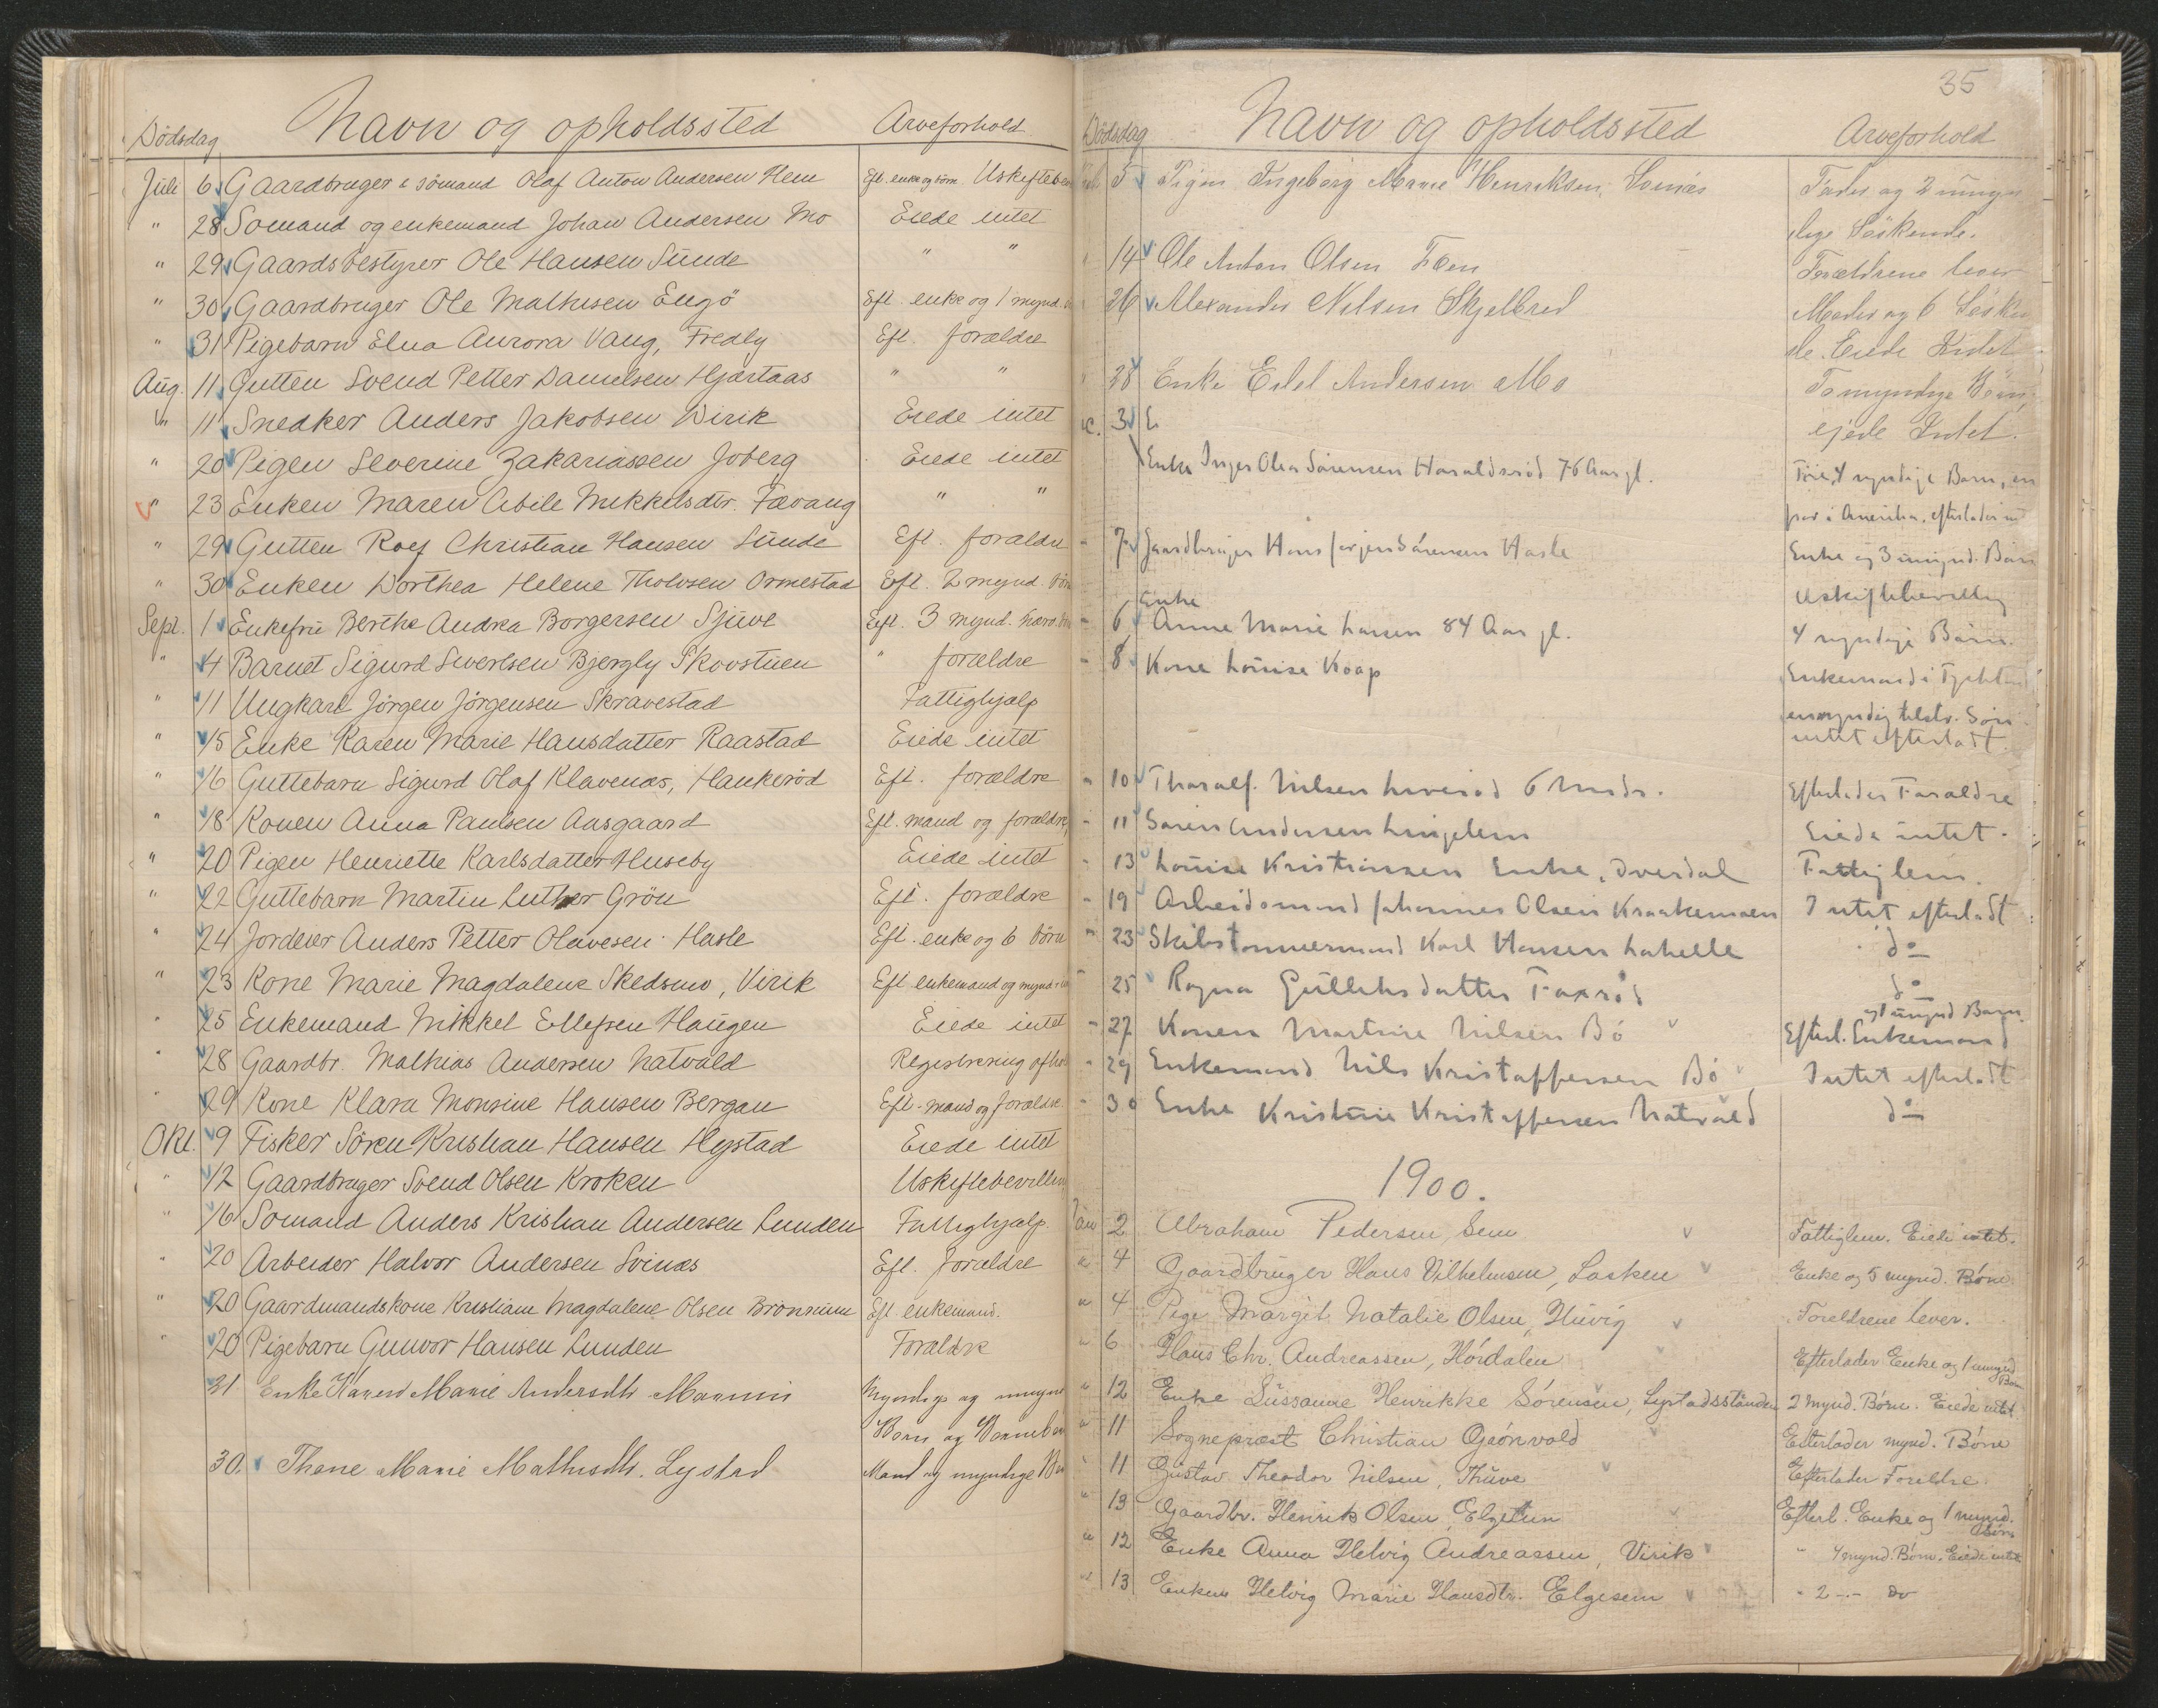 Dödsdag Navn og opholdssted Arveforhold
Juli 6 Gaardbruger & sömand Olaf Anton Andersen Hem Eft. enke og börn Uskiftebev
" 28 Sömand og enkemand Johan Andersen Mo Eiede intet
" 29 Gaardsbestyrer Ole Hansen Sünde " "
" 30 Gaardbruger Ole Mathisen Engö Eft. enke og 1 mynd.
" 31 Pigebarn Elna Aurora Vang, Fredly Eft. forældre
Aug. 11 Gutten Svend Petter Danielsen Hjertaas " "
" 11 Snedker Anders Jakobsen Virik Eiede intet
" 20 Pigen Severine Zakariassen Joberg Eiede intet
" 23 Enken Maren Abile Mikkelsdtr. Fævang " "
" 29 Gutten Rolf Christian Hansen Sünde Eft. forældre
" 30 Enken Dorthea Helene Tholvsen Ormestad Eft. 2 mynd. börn
Sept. 1 Enkefru Berthe Andrea Borgersen Sjüve Eft. 3 mynd.
" 4 Barnet Sigurd Sivertsen Bjergly Skovstuen " forældre
" 11 Ungkarl Jörgen Jörgensen Skravestad Fattighjælp
" 15 Enke Karen Marie Hansdatter Raastad Eiede intet
" 16 Guttebarn Sigurd Olaf Klavenæs, Haukeröd Eft. forældre
" 18 Konen Anna Paulsen Aasgaard Eft. mand og forældre
" 20 Pigen Henriette Karlsdatter Huseby Eiede intet
" 22 Guttebarn Martin Luther Grön Eft. forældre
" 24 Jordeier Anders Petter Olavesen Hasle Eft. enke og 6 börn
" 23 Kone Marie Magdalene Skedsmo, Virik Eft enkemand og mynd.
" 25 Enkemand Mikkel Ellefsen Haugen Eiede intet
" 28 Gaardbr. Mathias Andersen Natvald Registrering afhol
" 29 Kone Klara Monsine Hansen Bergan Eft. mand og forældre
Okt. 9 Fisker Sören Kristian Hansen Hystad Eiede intet
" 12 Gaardbruger Svend Olsen Kroken Uskiftebevilling
" 16 Sömand Anders Kristian Andersen Lunden Fattighjælp
" 20 Arbeider Halvor Andersen Svinæs Eft. forældre
" 20 Gaardmandskone Kristiane Magdalene Olsen Brönnum Eft enkemand.
" 20 Pigebarn Gunvor Hansen Lunden Forældre
21 Enke Karen Marie Andersdtr. Myndige og umynd
Börn og Börnebörn
30. Thene Marie Mathisdtr. Lystad Mand og myndige Börn
35
Dödsdag Navn og opholdssted Arveforhold
5 Pigen Ingeborg Marie Henriksen, Svinæs Fader og 2 umyn
dige Söskende.
14 Ole Anton Olsen Fæn Forældrene lever
26 Alexander Nilsen Skjelbred Moder og 6 Söskn
de. Eiede Intet
28 Enke Edel Andersen Mo To myndige Börn,
ejede Intet.
3 E
Enke Inger Olea Sörensen Haraldsröd 76 Aar gl. 4 myndige Barn, en
par i Amerika, efterlader int
7 Gaardbruger Hans Jörgen Sörensen Hasle Enke og 3 umynd. Barn
Uskiftebevilling
Enke
6 Anne Marie Larsen 84 Aar gl. 4 myndige Börn.
8 Kone Louise Koop Enkemand i Tyskland
en myndig Sön
intet efterladt.
" 10 Tharalf Nilsen 6 Mndr. Efterlader Foraldre
" 11 Sören Andersen Lingelem Eiede intet.
" 13 Louise Kristiansen Enke, Dverdal Fattiglem.
" 19 Arbeidsmand Johannes Olsen Kraakemoen Intet efterladt
" 23 Skibstömmermand Karl Hansen Lahelle do
" 25 Ragna Gulliksdatter Foxröd do
og 1 umynd Barn.
" 27 Konen Martine Nilsen Bö Efterl. Enkemand
" 29 Enkemand Nils Kristoffersen Bö Intet efterladt
" 30 Enke Kristine Kristoffersen Natvald do
1900.
Jan 2 Abraham Pedersen, Sem Fattiglem. Eiede intet.
" 4 Gaardbruger Hans Vilhelmsen, Lasken Enke og 5 mynd. Börn
" 4 Pige Margit Natalie Olsen, Huvig Foreldrene lever.
" 6 Hans Chr. Andreassen, Hördalen Efterlader Enke og 1 umynd
Barn
" 12 Enke Süssanne Henrikke Sörensen, Lystadsstünden 2 mynd. Börn. Eiede intet
" 11 Sogneprest Christian Grönvold Efterlader mynd. Börn
" 11 Gustav Theodor Nilsen, Thüve Efterlader Foreldre.
" 13 Gaardbr. Henrik Olsen, Elgetun Efterl. Enke og 1 mynd.
" 12 Enke Anna Helvig Andreassen, Virik " 4 mynd. Börn. Eiede intet
" 13 Enken Helvig Marie Hansdtr. Elgesem " 2 -"- do